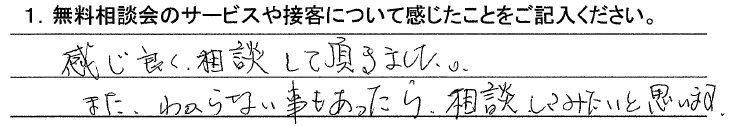 1. 無料相談会のサービスや接客について感じたことをご記入ください。
感じ良く、相談して頂きました。
また、わからない事もあったら、相談してみたいと思います。